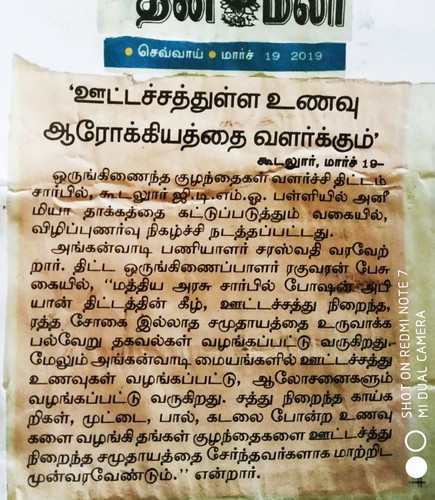 தினமலர்
• செவ்வாய் • மார்ச் 19 2019
'ஊட்டச்சத்துள்ள உணவு
ஆரோக்கியத்தை வளர்க்கும்'
கூடலூர், மார்ச் 19–
ஒருங்கிணைந்த குழந்தைகள் வளர்ச்சி திட்டம்
சார்பில், கூடலூர் ஜி.டி.எம்.ஓ. பள்ளியில் அனீ
மியா தாக்கத்தை கட்டுப்படுத்தும் வகையில்,
விழிப்புணர்வு நிகழ்ச்சி நடத்தப்பட்டது.
அங்கன்வாடி பணியாளர் சரஸ்வதி வரவேற்
றார். திட்ட ஒருங்கிணைப்பாளர் ரகுவரன் பேசு
கையில், "மத்திய அரசு சார்பில் போஷன் அபி
யான் திட்டத்தின் கீழ், ஊட்டச்சத்து நிறைந்த,
ரத்த சோகை இல்லாத சமுதாயத்தை உருவாக்க
பல்வேறு தகவல்கள் வழங்கப்பட்டு வருகிறது.
மேலும் அங்கன்வாடி மையங்களில் ஊட்டச்சத்து
உணவுகள் வழங்கப்பட்டு, ஆலோசனைகளும்
வழங்கப்பட்டு வருகிறது. சத்து நிறைந்த காய்க
றிகள், முட்டை, பால், கடலை போன்ற உணவு
களை வழங்கி தங்கள் குழந்தைகளை ஊட்டச்சத்து
நிறைந்த சமுதாயத்தை சேர்ந்தவர்களாக மாற்றிட
முன்வரவேண்டும்." என்றார்.
SHOT ON REDMI NOTE 7
MI DUAL CAMERA